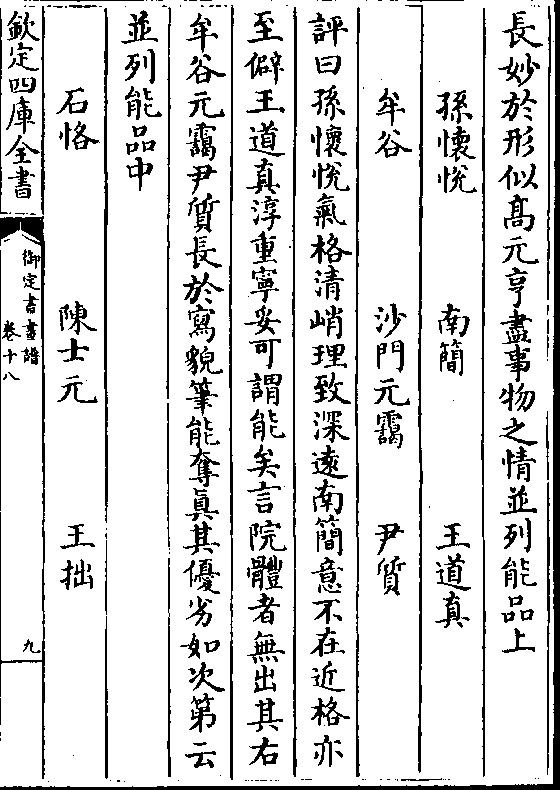 長妙於形似髙元亨盡事物之情並列能品上
孫懷悅　南簡　王道真
牟谷　沙門元靄　尹質
評曰孫懷悅氣格清峭理致深逺南簡意不在近格亦
至僻王道真淳重寧妥可謂能矣言院體者無出其右
牟谷元靄尹質長於寫貌筆能奪真其優劣如次第云
並列能品中
石恪　陳士元　王拙
欽定四庫全書
御定書畫譜
卷十八
九